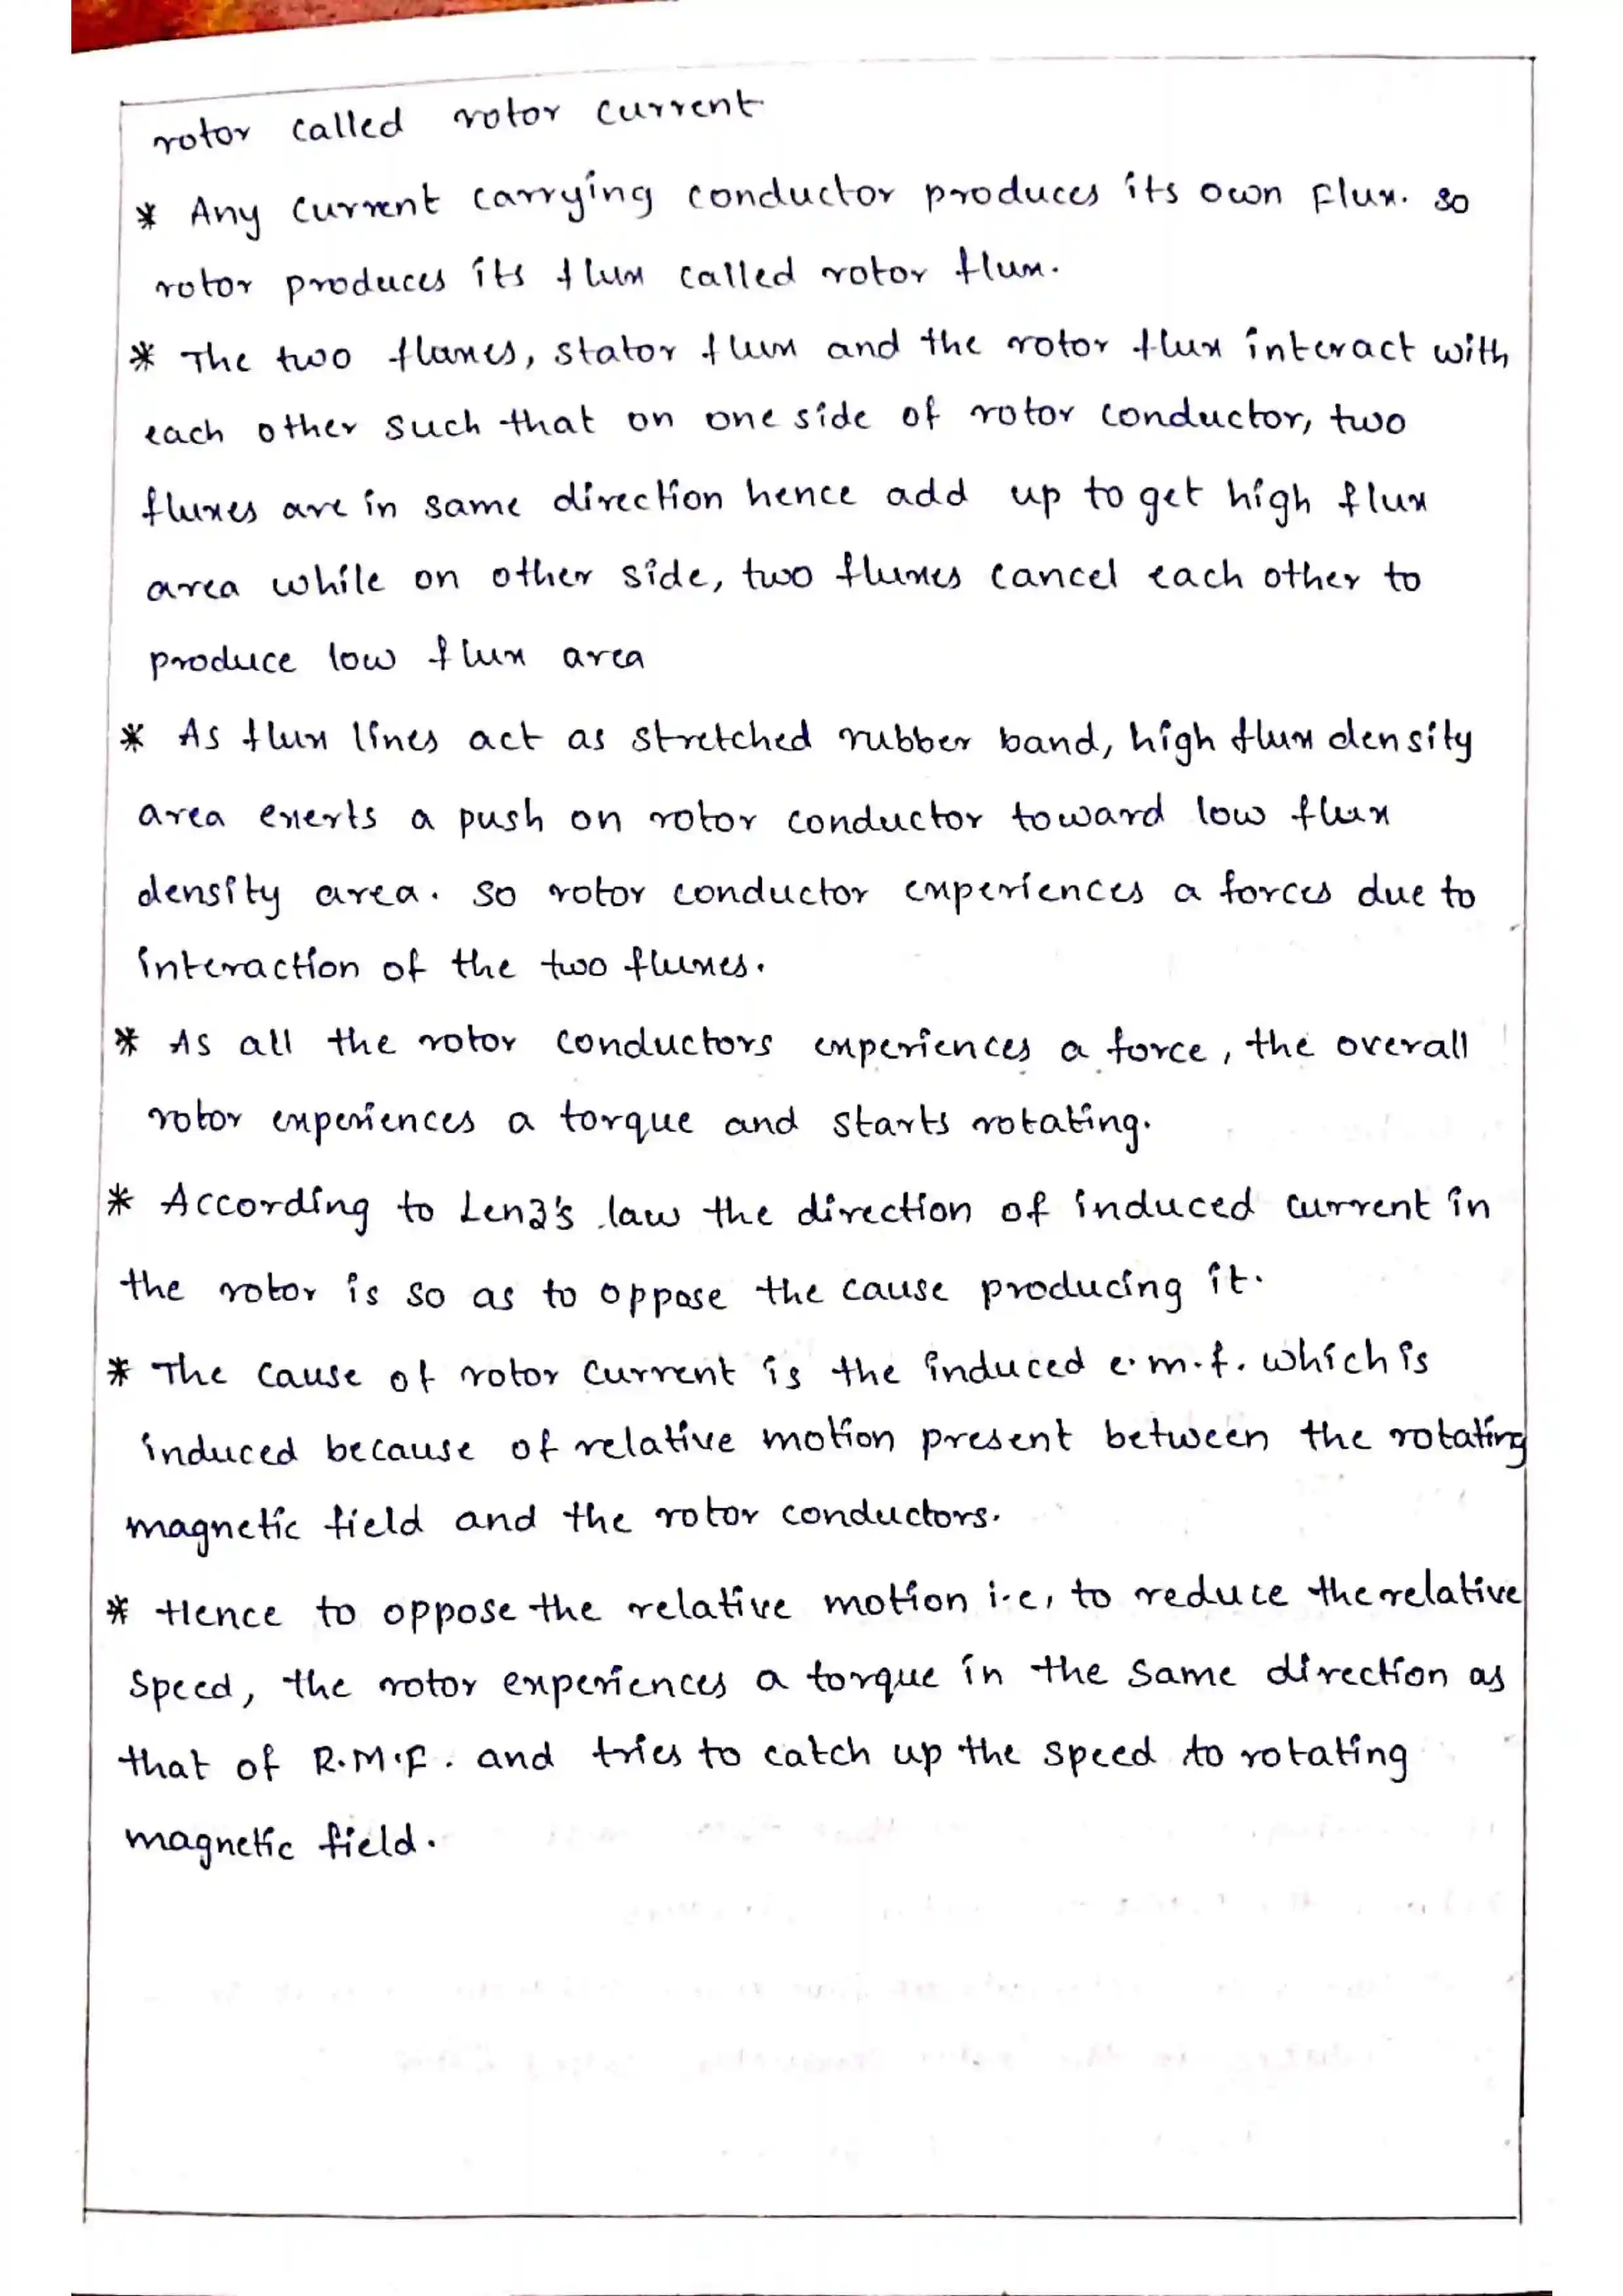 rotor called rotor current
* Any current carrying conductor produces its own flux. so
rotor produces its flux called rotor flux.
* The two fluxes, stator flux and the rotor flux interact with
each other such that on one side of rotor conductor, two
fluxes are in same direction hence add up to get high flux
area while on other side, two fluxes cancel each other to
produce low flux area
* As flux lines act as stretched rubber band, high flux density
area exerts a push on rotor conductor toward low flux
density area. so rotor conductor experiences a forces due to
interaction of the two fluxes.
* As all the rotor conductors experiences a force, the overall
rotor experiences a torque and starts rotating.
* According to Lenz's law the direction of induced current in
the rotor is so as to oppose the cause producing it.
* The cause of rotor current is the induced e.m.f. which is
induced because of relative motion present between the rotating
magnetic field and the rotor conductors.
* Hence to oppose the relative motion i.e, to reduce the relative
speed, the rotor experiences a torque in the same direction as
that of R.M.F. and tries to catch up the speed to rotating
magnetic field.